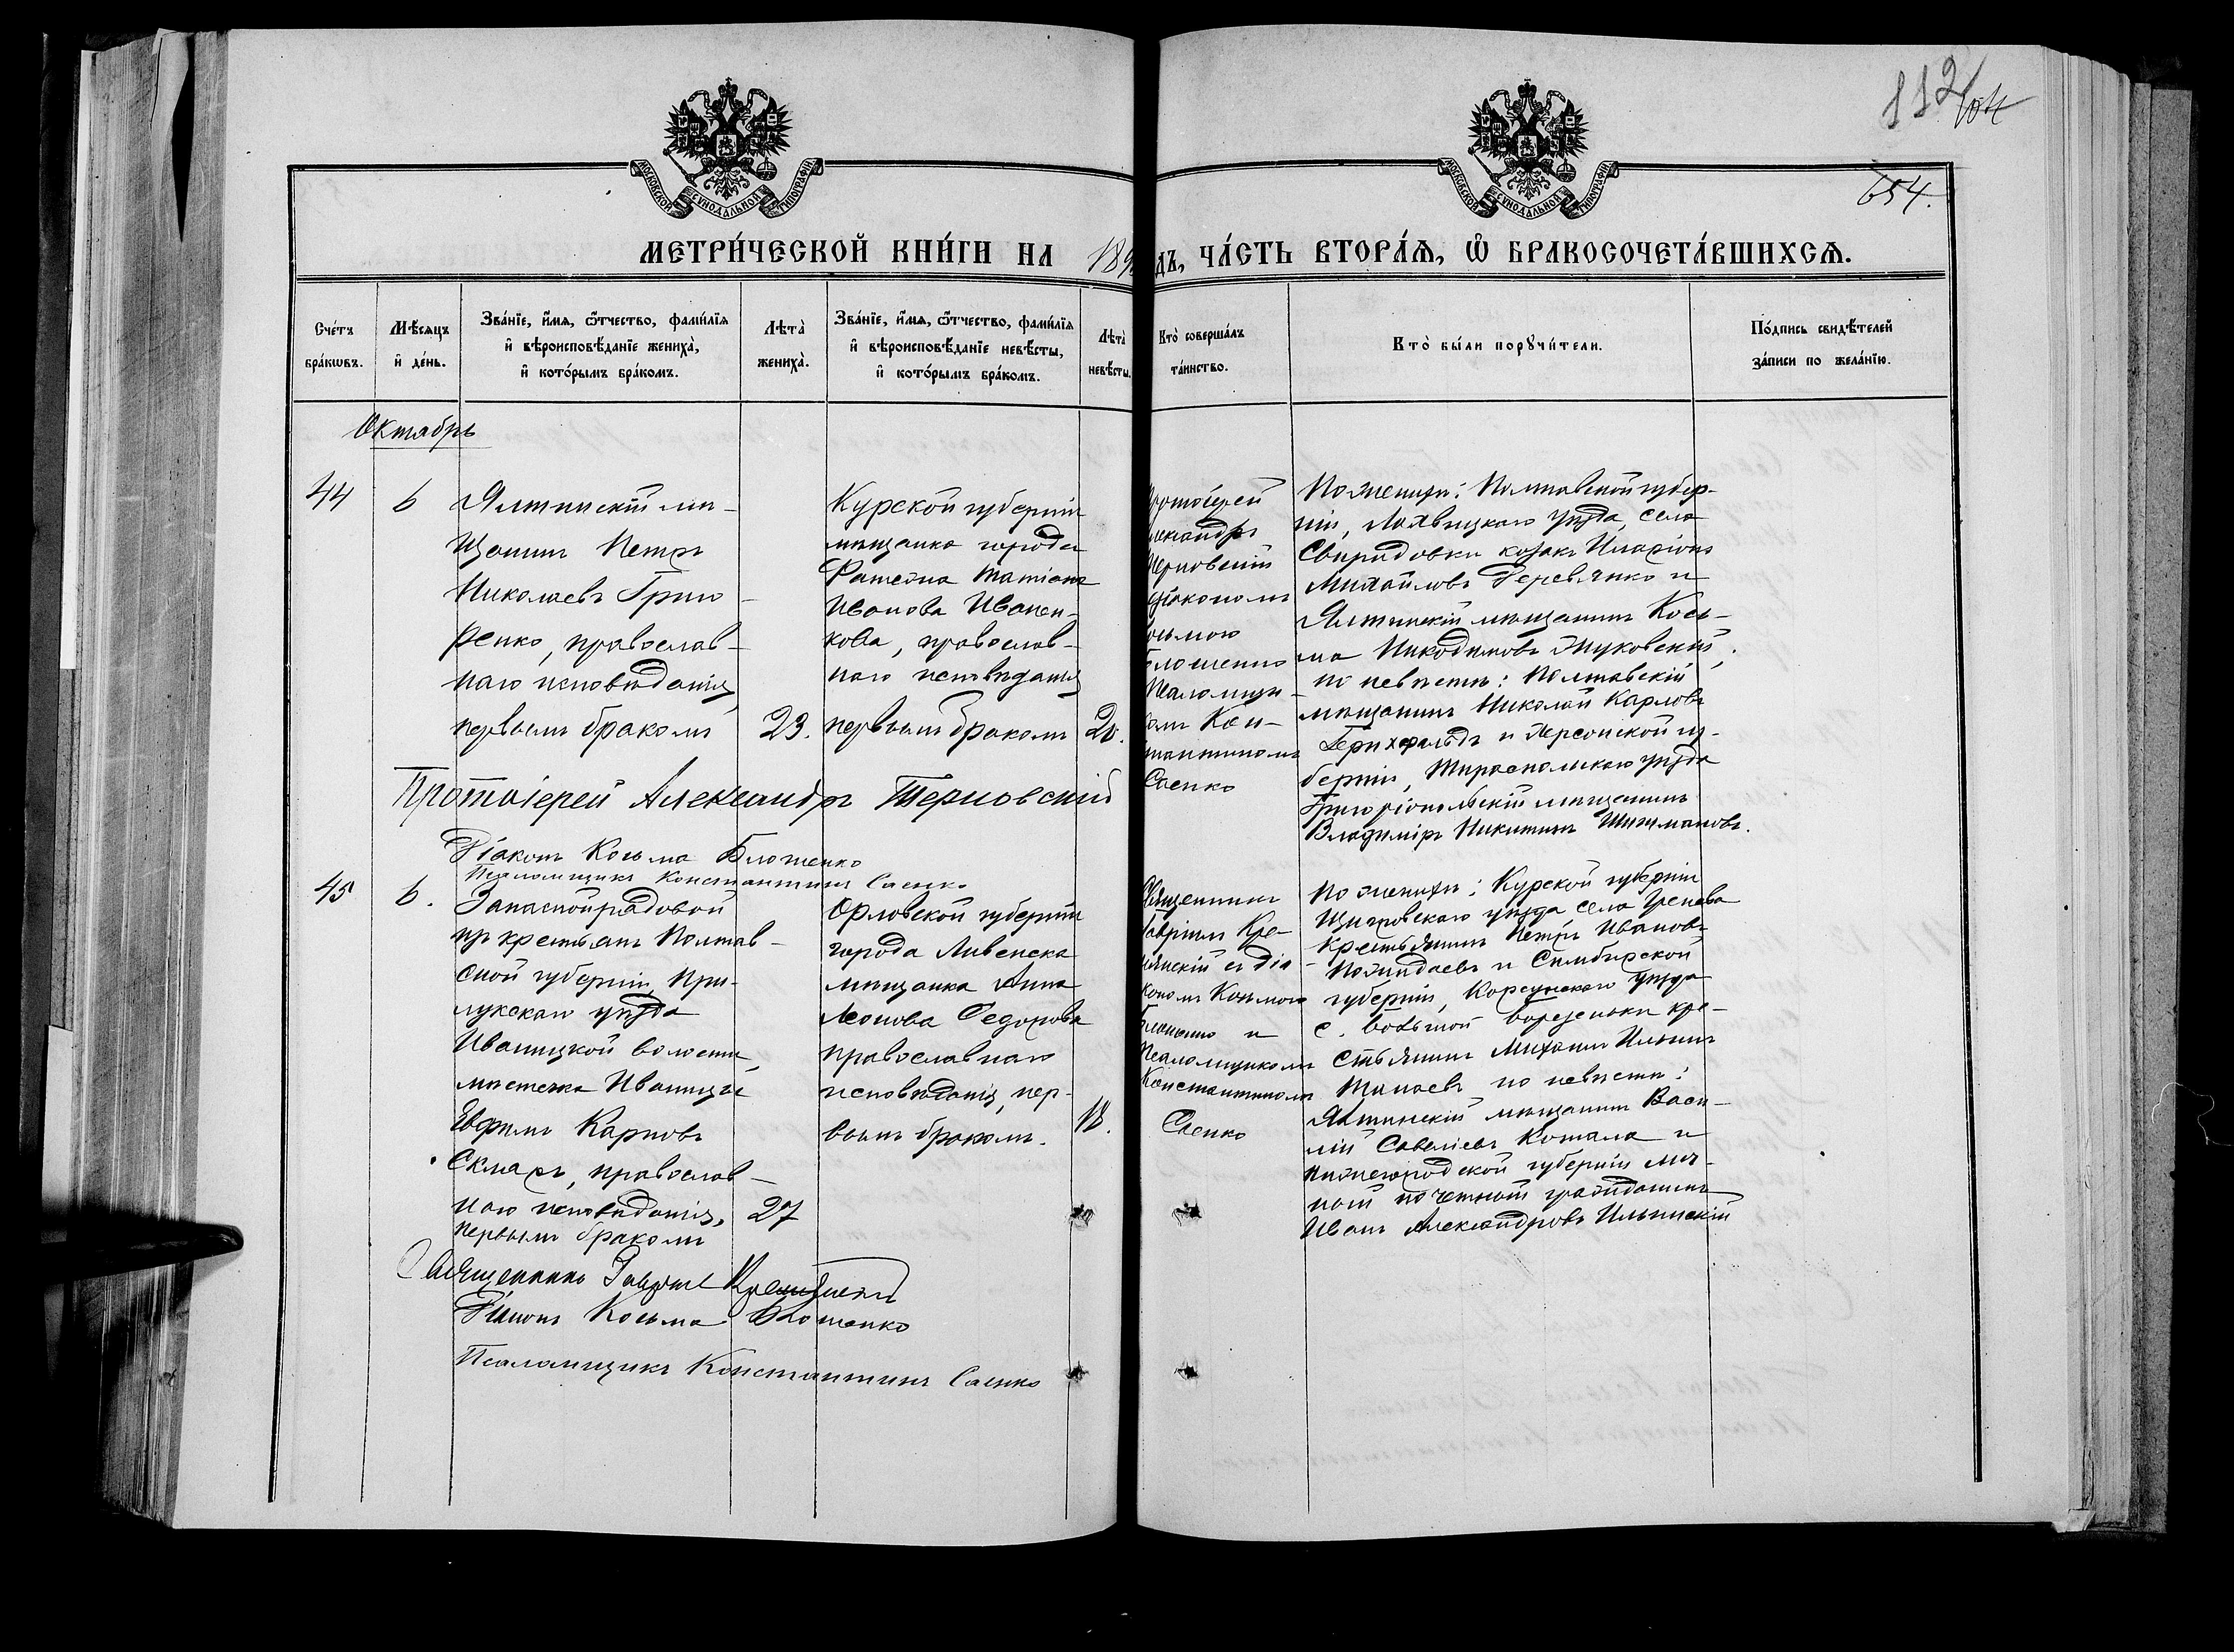 112
654.
МОСКОВСКОЙ СѴНОДАЛЬНОЙ ТИПОГРАФІИ
МОСКОВСКОЙ СѴНОДАЛЬНОЙ ТИПОГРАФІИ
МЕТРИ́ЧЕСКОЙ КНИ́ГИ НА 189
ДЪ, ЧА́СТЬ ВТОРА́Я, Ѽ БРАКОСОЧЕТА́ВШИХСЯ.
Сче́тъ бра́кѡвъ.
Мѣ́сяцъ и҆ де́нь.
Зва́нїе, и҆́мя, ѻ҆́тчество, фами́лїя
и҆ вѣроисповѣ́данїе жениха̀,
и҆ кото́рымъ бра́комъ.
Лѣта̀ жениха̀.
Зва́нїе, и҆́мя, ѻ҆́тчество, фами́лїя
и҆ вѣроисповѣ́данїе невѣ́сты,
и҆ кото́рымъ бра́комъ.
Лѣта̀ невѣ́сты.
Кто̀ соверша́лъ та́инство.
Кто̀ бы́ли порꙋчи́тели.
По́дпись свидѣ́телей за́писи по жела́нїю.
Октябрь
44
6
Ялтинскій мѣ-
щанинъ Петръ
Николаевъ Григо-
ренко, православ-
наго исповѣданія,
первымъ бракомъ
23.
Курской губерніи
мѣщанка города
Татіана
Иванова Иванен-
кова, православ-
наго исповѣданія
первымъ бракомъ
20.
ротоіерей
лександръ
Терновскій
діакономъ
осьмою
Блошенко
Псаломщи-
комъ Кон-
стантиномъ
Саенко
По женихѣ: Полтавской губер-
ніи, Лохвицкаго уѣзда, села
Свиридовки козакъ Иларіонъ
Михайловъ Деревянко и
Ялтинскій мѣщанинъ Кось-
ма Никодимовъ Жуковскій,
по невѣстѣ: Полтавскій
мѣщанинъ Николай Карловъ
и Херсонской гу-
берніи, Тираспольскаго уѣзда
Григоріопольскій мѣщанинъ
Владиміръ Никитинъ Шишмановъ.
Протоіерей Александръ Терновскій
Діаконъ Косьма Блошенко
Псаломщикъ Константинъ Саенко
45
6.
Запасной рядовой
изъ крестьянъ Полтав-
ской губерніи, При-
лукскаго уѣзда
Иваницкой волости,
мѣстечка Иваницы
Евфимъ Карповъ
Скляръ, православ-
наго исповѣданія,
первымъ бракомъ
27
Орловской губерніи
города Ливенска
мѣщанка Анна
Леонова Федорова
православнаго
исповѣданія, пер-
вымъ бракомъ.
18.
Священникъ
Гавріилъ
съ діа-
кономъ Космою
Блошенко и
Псаломщикомъ
Константиномъ
Саенко
По женихѣ: Курской губерніи
Щигровскаго уѣзда села
крестьянинъ Петръ Ивановъ
и Симбирской
губерніи, Корсунскаго уѣзда
с. Большой Борезенки кре-
стьянинъ Михаилъ Ильинъ
по невѣстѣ:
Ялтинскій мѣщанинъ Васи-
лій Савеліевъ и
Нижегородской губерніи лич-
ный почетный гражданинъ
Иванъ Александровъ Ильинскій
Священникъ Гавріилъ
Діаконъ Косьма Блошенко
Псаломщикъ Константинъ Саенко